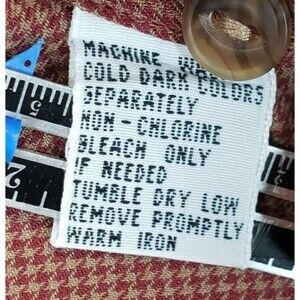 MACHINE WASH
COLD DARK COLORS
SEPARATELY
NON-CHLORINE
BLEACH ONLY
IF NEEDED
TUMBLE DRY LOW
REMOVE PROMPTLY
WARM IRON
5
2